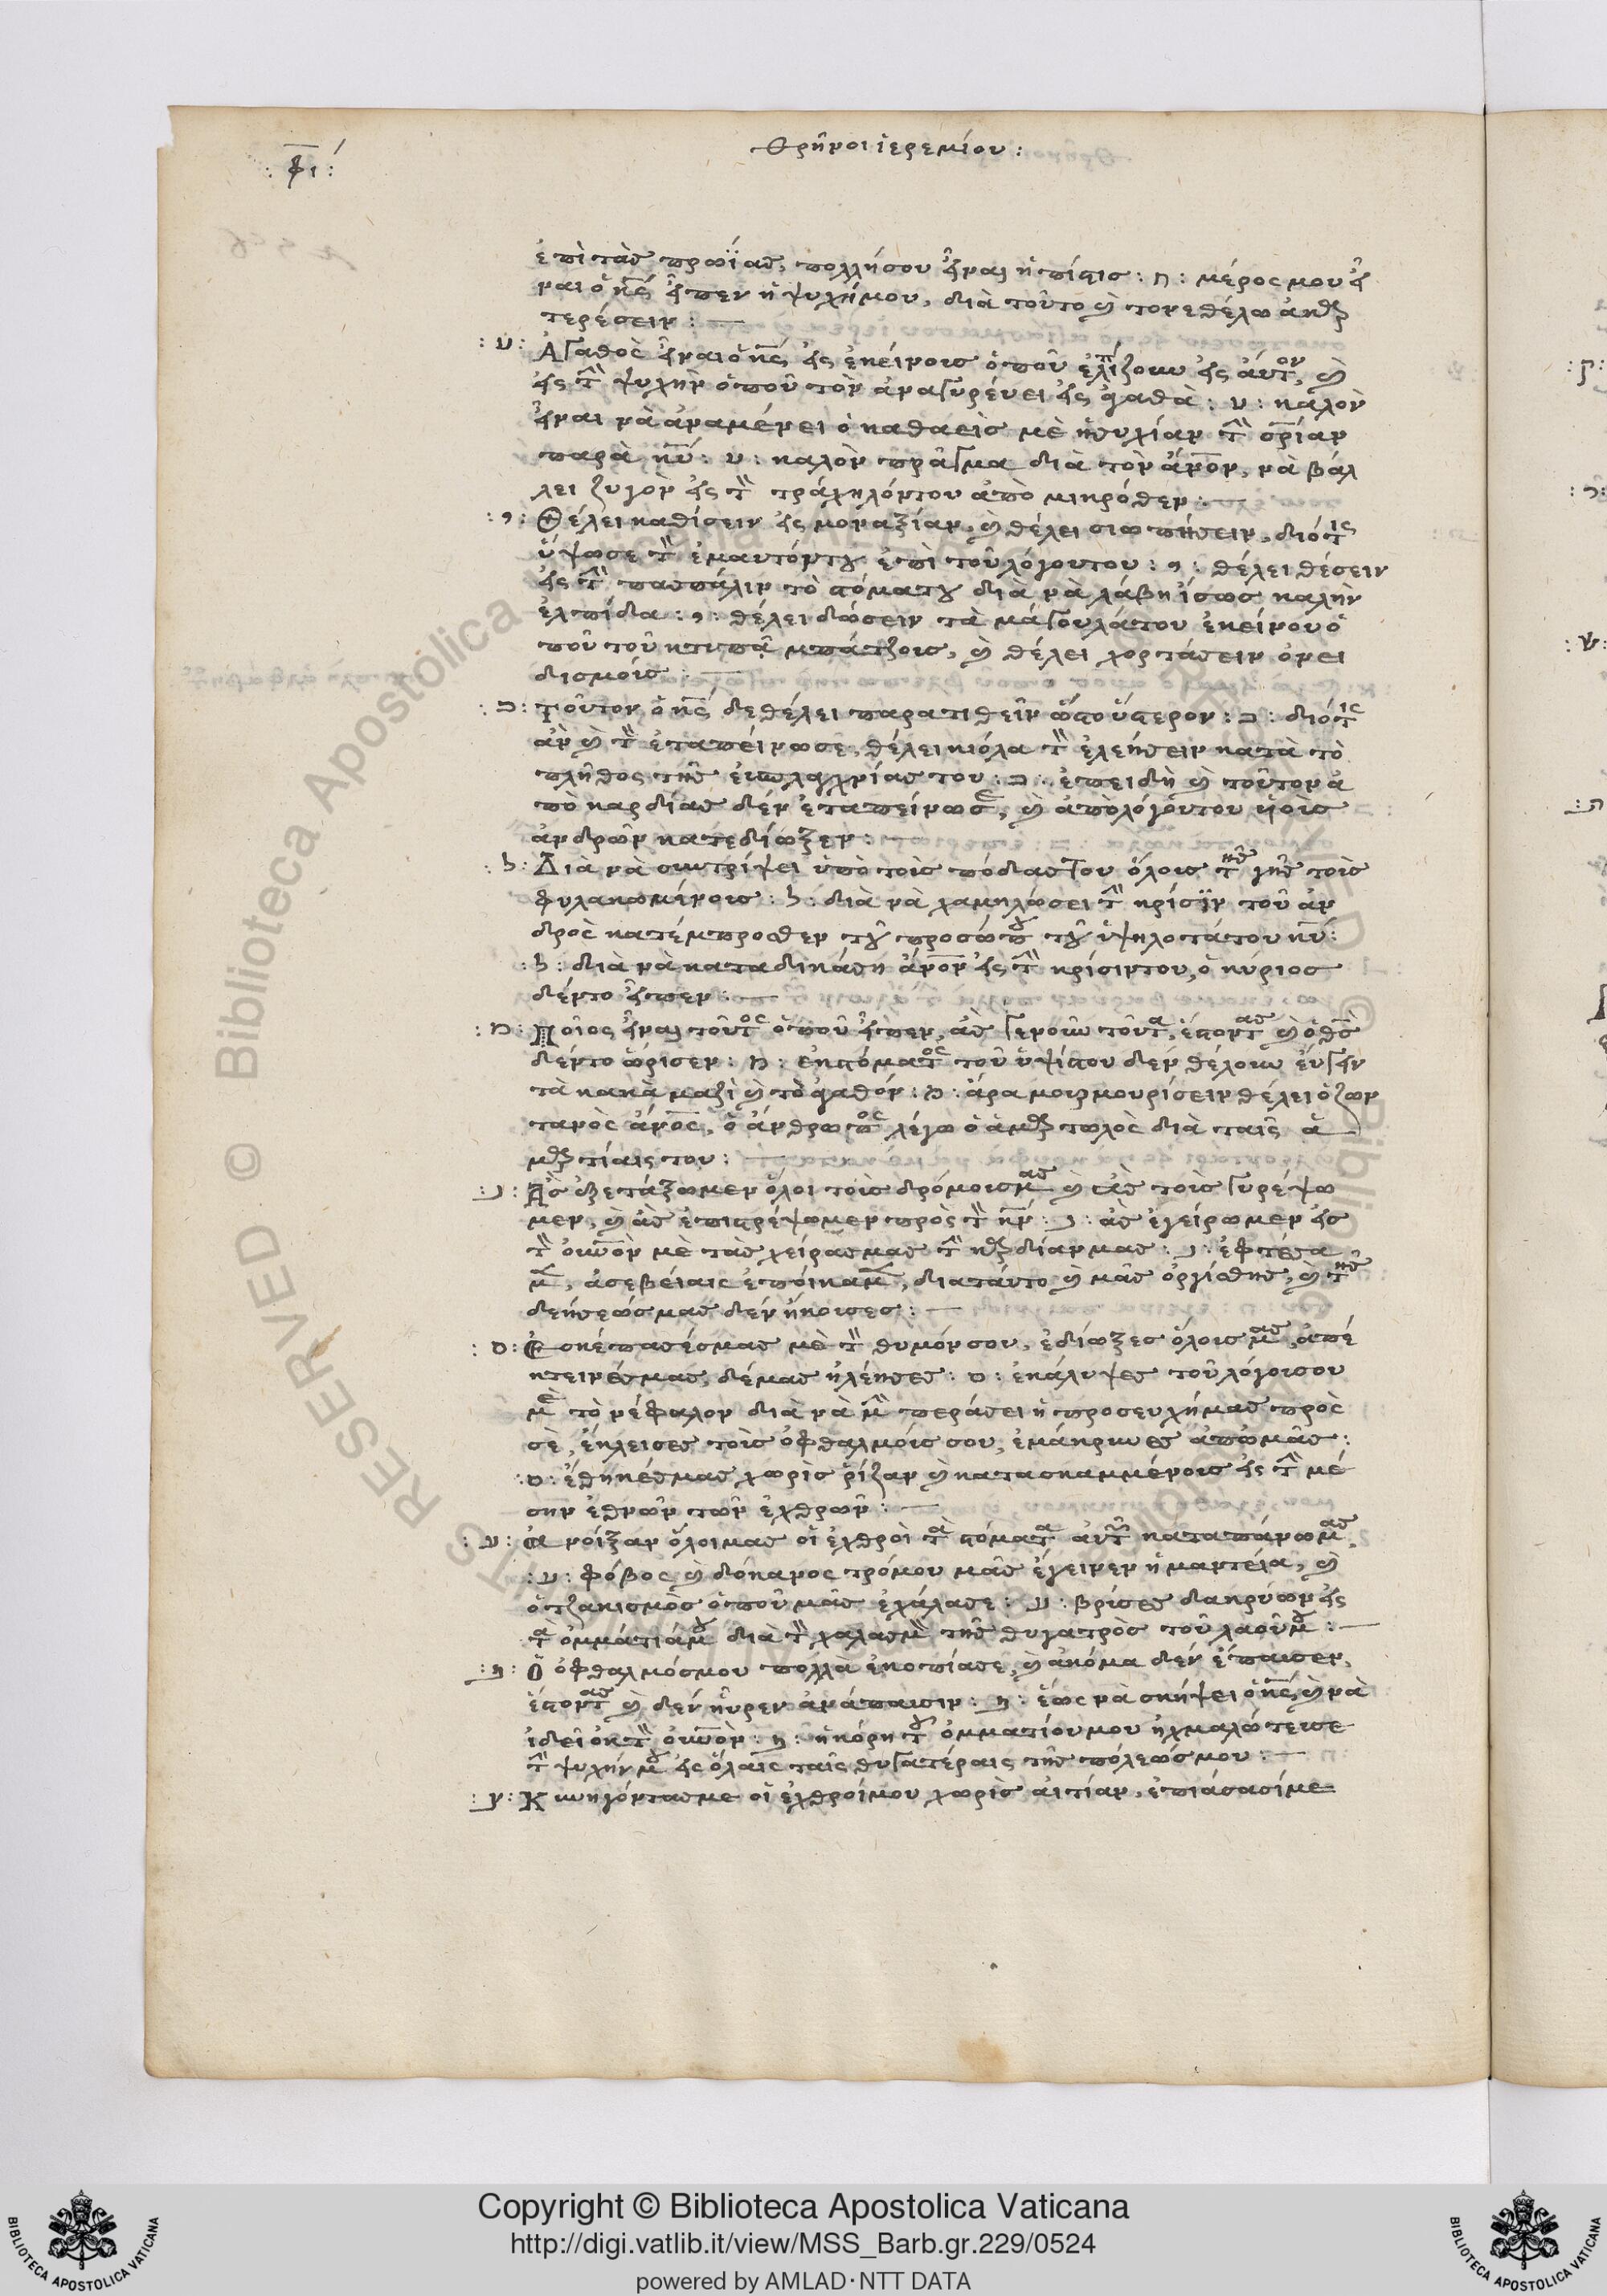 : φι :
Θρῆνοι ἱερεμίου :
ἐπὶ τὰς πρωϊάς, πολλή σου εἶναι ἡ πίστις : ח : μέρος μου εἶ
ναι ὁ κς̅ εἶπεν ἡ ψυχή μου, διὰ τοῦτο καὶ τον ἐθέλω ἀκαρ
τερέσειν :
: ט : Ἀγαθὸς εἶναι ὁ κς̅ εἰς ἐκείνοις ὁποῦ ἐλπίζουν εἰς αὐτόν, καὶ
εἰς τὴν ψυχὴν ὁποῦ τὸν ἀναγυρέυει εἰς ἀγαθὰ : ט : καλὸν
εἶναι νὰ ἀναμένει ὁ καθαεὶς μὲ ἡσυχίαν τὴν σρ̅ίαν
παρὰ κυ̅ : ט : καλὸν πρᾶγμα διὰ τὸν ἄνο̅ν, νὰ βάλ
λει ζυγὸν εἰς τὸν τράχηλόν του ἀπὸ μικρόθεν :
: י : Θέλει καθίσειν εἰς μοναξίαν, καὶ θέλει σιωπήσειν, διότις
ὕψωσε τὸν ἐμαυτόν του ἐπὶ τοῦ λόγου του : י : θέλει θέσειν
εἰς τὴν πασπάλιν τὸ στόμα του διὰ νὰ λάβη ἴσως καλὴν
ἐλπίδα : י : θέλει δώσειν τὰ μάγουλά του ἐκείνου ὁ
ποῦ τοῦ κτυπᾶ μπάτζοις, καὶ θέλει χορτάσειν ὀνει
δισμοίς :
: כ : Τοῦτον ὁ κς̅ δε θέλει παρατιθεῖν ὥστο ὕστερον : כ : διότις
ἀν καὶ τὸν ἐταπείνωσε, θέλει κιόλα τὸν ἐλεήσειν κατὰ τὸ
πλῆθος τῆς ἐυσπλαχνίας του : כ : ἐπειδὴ καὶ τοῦτον ἀ
πὸ καρδίας δέν ἐταπείνωσε, καὶ ἀπὸ λόγου του ὑιοὶς
ἀνδρῶν κατεδίωξεν :
: ל : Διὰ νὰ συντρίψει ὑπὸ τοὶς πόδας του ὅλοις τῆς γῆς τοὶς
φυλακωμένοις : ל : διὰ νὰ χαμηλώσει τὴν κρίσϊν τοῦ ἀν
δρὸς κατέμπροσθεν τοῦ προσώπου τοῦ ὑψηλοτάτου κυ̅ :
: ל : διὰ νὰ καταδικάση ἄνο̅ν εἰς τὴν κρίσιν του, ὁ κύριος
δέν το εἶπεν :
: מ : Ποῖος εἶναι τοῦτος ὁποῦ εἶπεν, ἀς γενοῦν τοῦτα, ἔστοντας καὶ ὁ θς̅
δέν το ὥρισεν : מ : ἐκ στόματος τοῦ ὑψίστου δεν θέλουν ἐυγεῖν
τὰ κακὰ μαζὶ καὶ τὸ ἀγαθόν : מ : ἄρα μουρμουρίσειν θέλει ὁ ζων
τανὸς ἄνο̅ς, ὁ ἄνθρωπος λέγω ὁ ἁμαρτωλὸς διὰ ταὶς ἁ
μαρτίαις του :
: נ : Ἀς ἐξετάξωμεν ὅλοι τοὶς δρόμοις μας καὶ ἀς τοὶς γυρέψω
μεν, καὶ ἀς ἐπιστρέψωμεν πρὸς τὸν κν̅ : נ : ἀς ἐγείρωμεν εἰς
τὸν οὐνο̅ν μὲ τὰς χείρας μας τὴν καρδίαν μας : נ : ἐφτέσα
μεν, ἀσεβείαις ἐποίκαμεν, διατάυτο καὶ μᾶς ὀργίσθης, καὶ τῆς
δεήσεώς μας δέν ἤκουσες :
: ס : Ἐσκέπασές μας μὲ τὸν θυμόν σου, ἐδίωξες ὅλοις μας, ἀπέ
κτεινές μας, δέ μας ἠλέησες : ס : ἐκάλυψες τοῦ λόγου σου
μὲ τὸ νέφαλον διὰ νὰ μὴν περάσει ἡ προσευχή μας πρὸς
σὲ, ἔκλεισες τοὶς ὀφθαλμοίς σου, ἐμάκρυνες ἀπὸ μᾶς :
: ס : ἔθηκές μας χωρὶς ῥίζαν καὶ κατασκαμμένοις εἰς τὴν μέ
σην ἐθνῶν τῶν ἐχθρῶν :
: ע : Ἀνοίξαν ὅλοι μας οἱ ἐχθροὶ τὰ στόματα αὐτῶν καταπάνω μας,
: ע : φόβος καὶ δόκανος τρόμου μᾶς ἔγεινεν ἡ μαντεία, καὶ
ὁ τζακισμὸς ὁποῦ μᾶς ἐχάλασε : ע : βρίσες δακρύων εἰς
τὰ ὀμμάτιά μου διὰ τὸν χαλασμὸν τῆς θυγατρὸς τοῦ λαοῦ μου :
: פ : Ὁ ὀφθαλμός μου πολλὰ ἐκοπίασε, καὶ ἀκόμα δέν ἔπαυσεν,
ἔστοντας καὶ δέν ηὗρεν ἀνάπαυσιν : פ : ἕως νὰ σκήψει ὁ κς̅, καὶ νὰ
ἰδεῖ ἐκ τὸν οὐνο̅ν : פ : ἡ κόρη τοῦ ὀμματίου μου ἠχμαλώτευσε
τὴν ψυχήν μου εἰς ὅλαις ταὶς θυγατέραις τῆς πόλεώς μου :
: צ : Κυνηγόντας με οἱ ἐχθροί μου χωρὶς αἰτίαν, ἐπιάσασί με
: ק :
: ר :
: ש :
: ת :
RESERVED © Biblioteca Apostolica
Copyright © Biblioteca Apostolica Vaticana
http://digi.vatlib.it/view/MSS_Barb.gr.229/0524
powered by AMLAD·NTT DATA
BIBLIOTECA APOSTOLICA VATICANA
BIBLIOTECA APOSTOLICA VATICANA